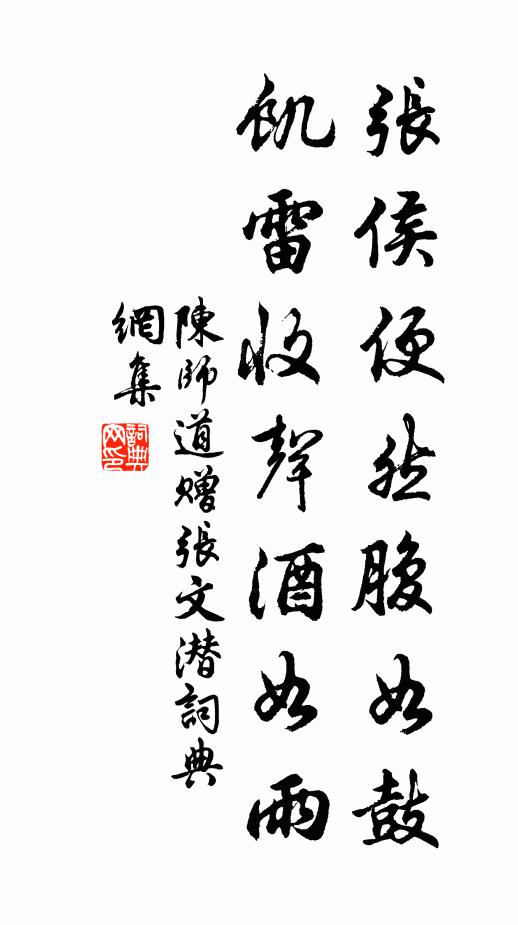 張侯便然腹如鼓
飢雷收聲酒如雨
陳師道贈張文潜詞典
網集
詞典網印